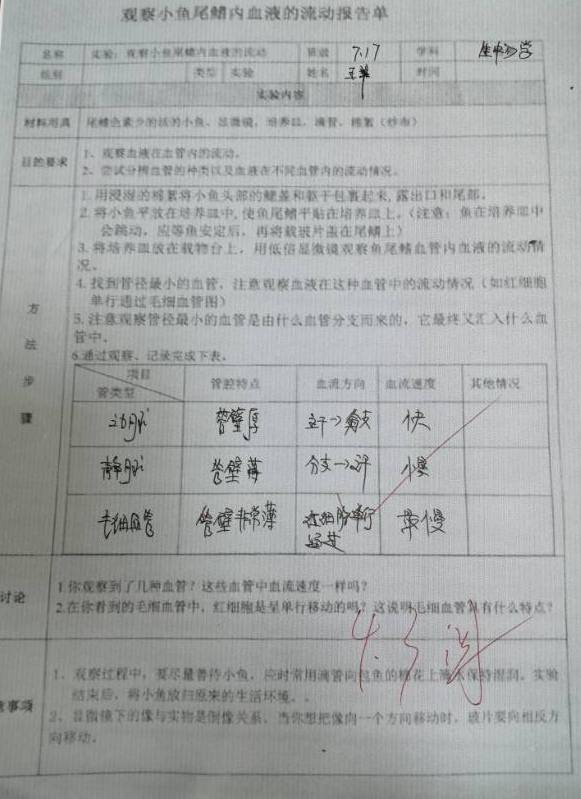 观察小鱼尾鳍内血液的流动报告单
名称 实验：观察小鱼尾鳍内血液的流动 班级 7.17 学科
组别 类型 实验 姓名 时间
实验内容
材料用具 尾鳍色素少的活的小鱼、显微镜、培养皿、滴管、棉絮（纱布）
目的要求
1、观察血液在血管内的流动。
2、尝试分辨血管的种类以及血液在不同血管内的流动情况。
方法步骤
1.用浸湿的棉絮将小鱼头部的鳃盖和躯干包裹起来,露出口和尾部。
2.将小鱼平放在培养皿中,使鱼尾鳍平贴在培养皿上。（注意：鱼在培养皿中
会跳动，应等鱼安定后，再将载玻片盖在尾鳍上）
3.将培养皿放在载物台上，用低倍显微镜观察鱼尾鳍血管内血液的流动情
况。
4.找到管径最小的血管，注意观察血液在这种血管中的流动情况（如红细胞
单行通过毛细血管图）
5.注意观察管径最小的血管是由什么血管分支而来的，它最终又汇入什么血
管中。
6.通过观察、记录完成下表。
项目
管类型 管腔特点 血流方向 血流速度 其他情况
动脉 管壁厚 主干→分支 快
静脉 管壁薄 分支→主干 慢
毛细血管 管壁非常薄 红细胞单行 最慢
讨论
1.你观察到了几种血管？这些血管中血流速度一样吗？
2.在你看到的毛细血管中，红细胞是呈单行移动的吗？这说明毛细血管具有什么特点？
意事项
1、观察过程中，要尽量善待小鱼，应时常用滴管向包鱼的棉花上滴水保持湿润。实验
结束后，将小鱼放归原来的生活环境。。
2、显微镜下的像与实物是倒像关系，当你想把像向一个方向移动时，玻片要向相反方
向移动。